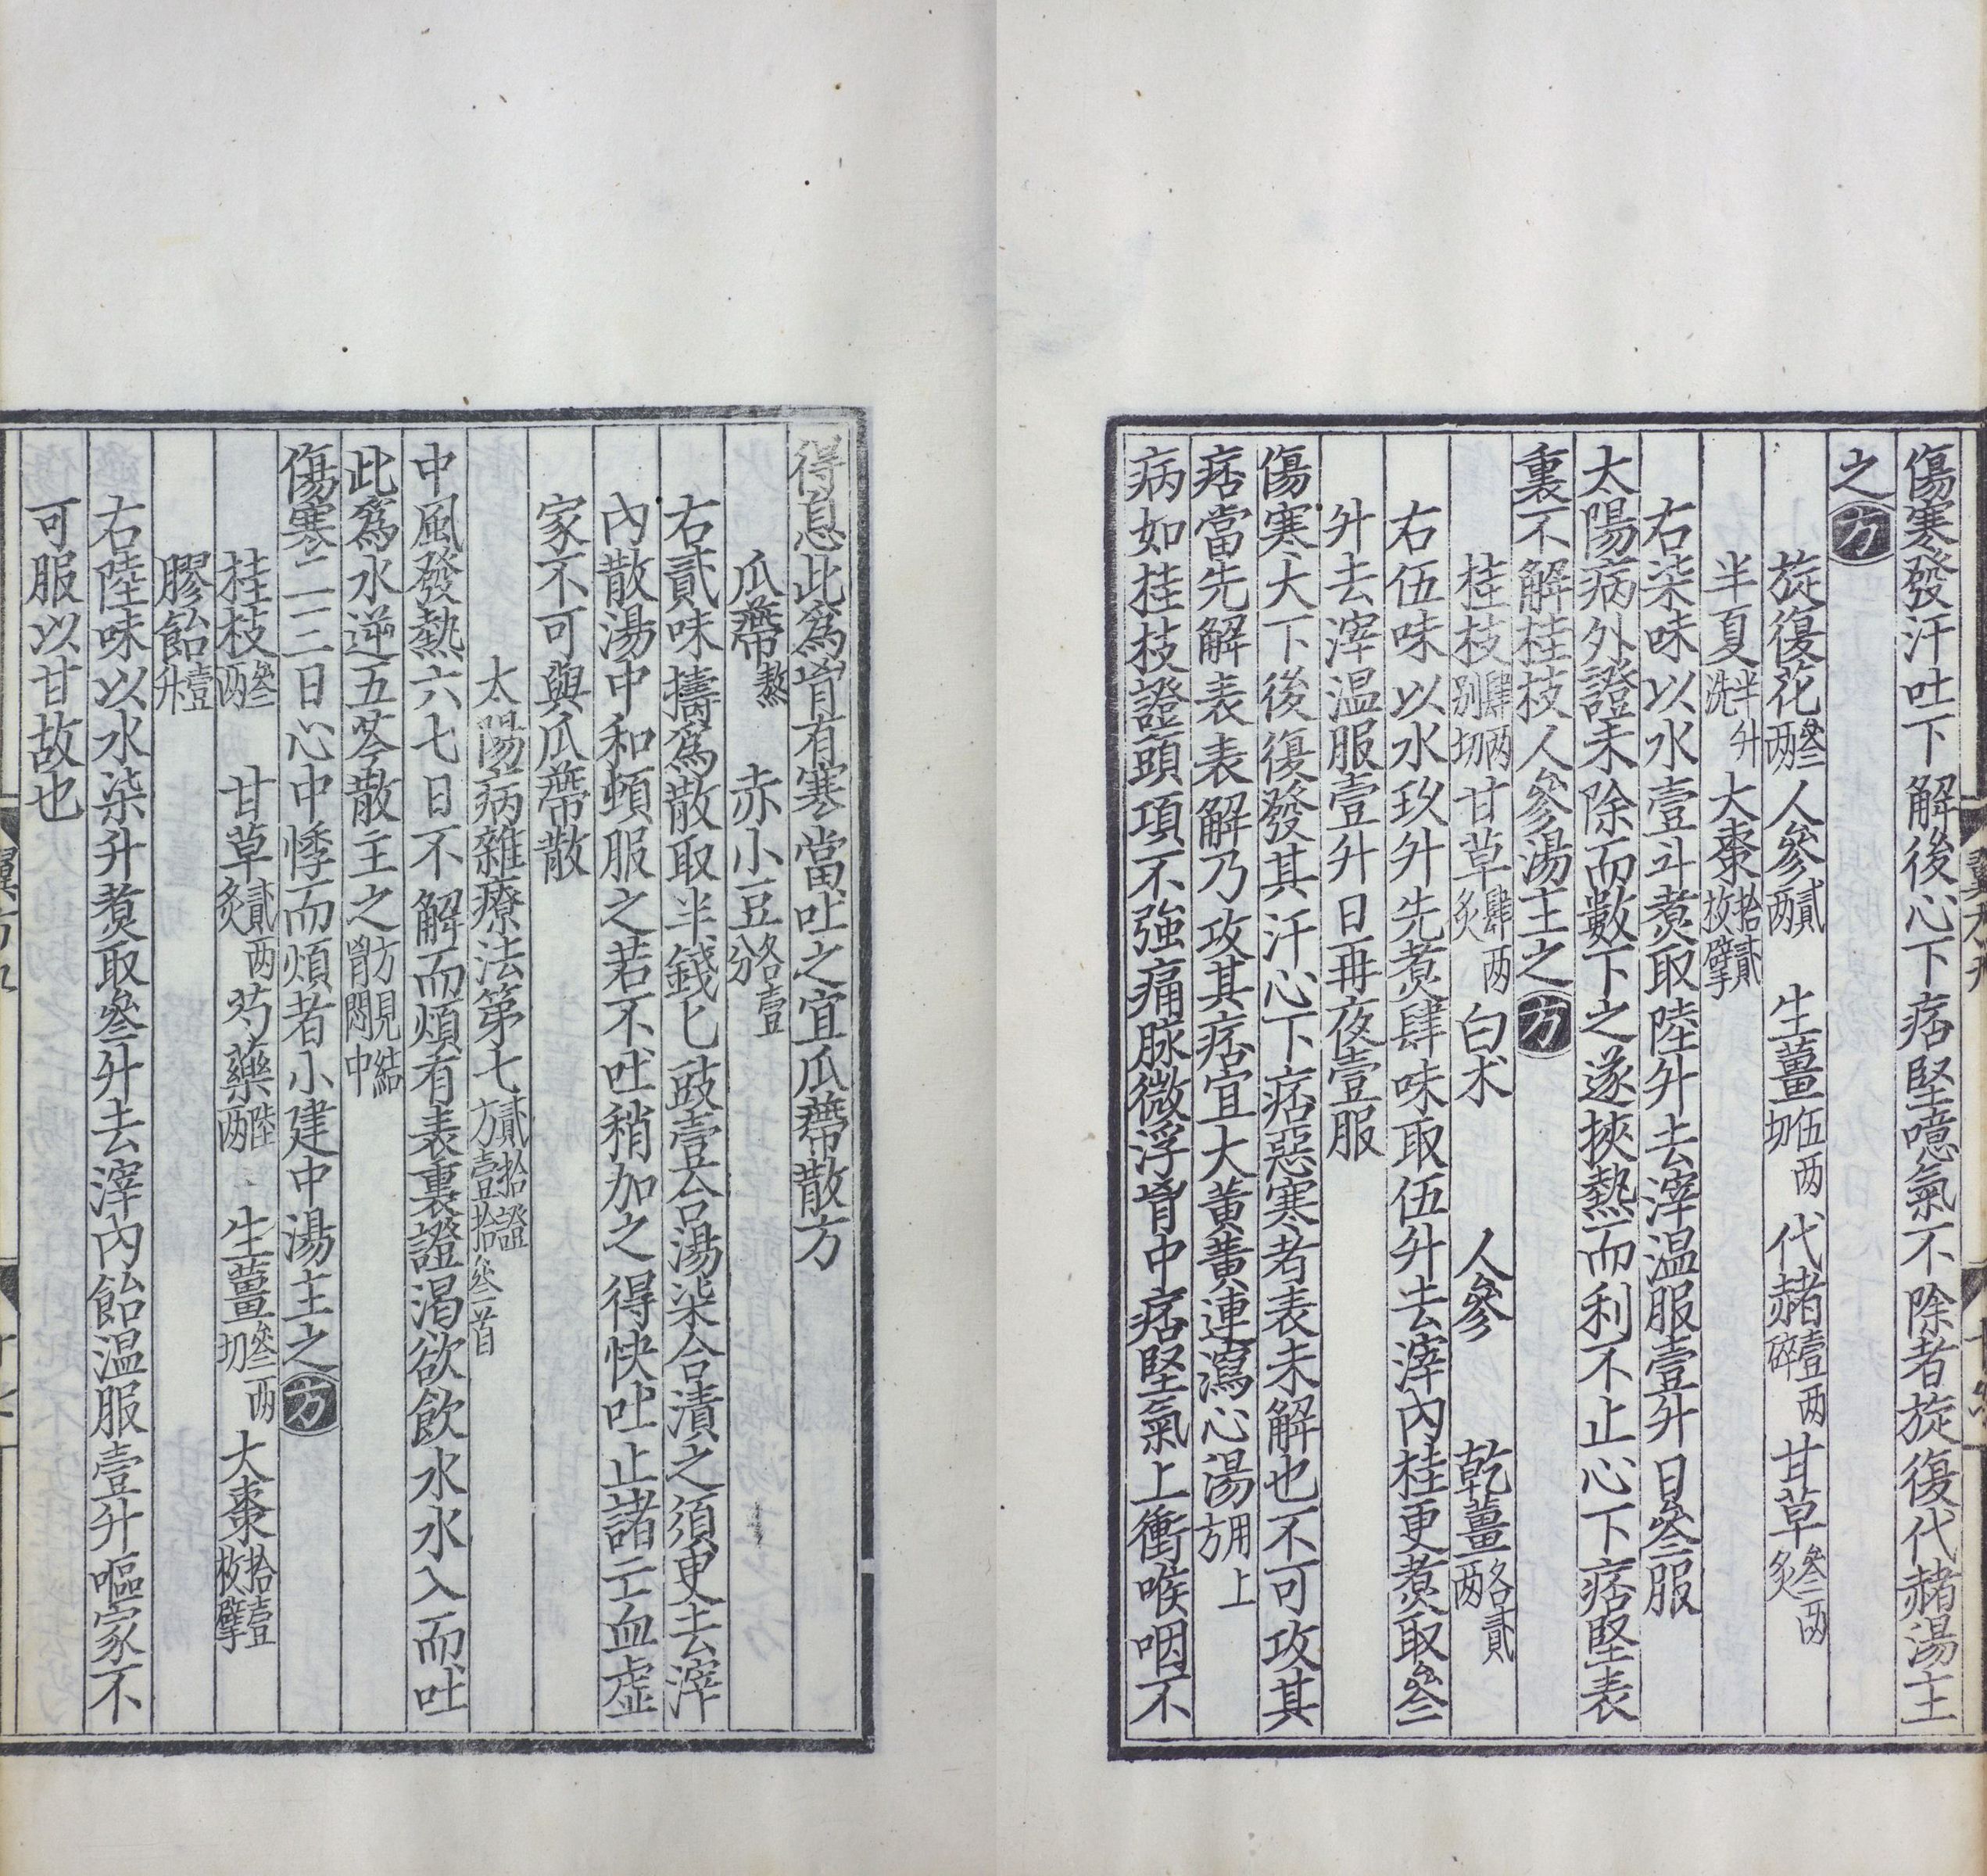 傷寒發汗吐下解後心下痞堅噫氣不除者旋復代赭湯主
之方
旋復花叁两 人參貳两 生薑伍两切 代赭壹两碎 甘草叁两炙
半夏半升洗 大棗拾貳枚擘
右柒味以水壹斗煑取陸升去滓温服壹升日叁服
太陽病外證未除而數下之遂挾熱而利不止心下痞堅表
裏不解桂枝人參湯主之方
桂枝肆两别切 甘草肆两炙 白术 人參 乾薑各貳两
右伍味以水玖升先煑肆味取伍升去滓內桂更煑取叁
升去滓温服壹升日再夜壹服
傷寒大下後復發其汗心下痞惡寒者表未解也不可攻其
痞當先解表表解乃攻其痞宜大黃黃連瀉心湯用上方
病如桂枝證頭項不強痛脉微浮胷中痞堅氣上衝喉咽不
得息此爲胷有寒當吐之宜瓜蔕散方
瓜蔕熬 赤小豆各壹分
右貳味擣爲散取半錢匕豉壹合湯柒合漬之須臾去滓
內散湯中和頓服之若不吐稍加之得快吐止諸亡血虛
家不可與瓜蔕散
太陽病雜療法第七貳拾證方壹拾叁首
中風發熱六七日不解而煩有表裏證渴欲飲水水入而吐
此爲水逆五苓散主之方見結胷悶中
傷寒二三日心中悸而煩者小建中湯主之方
桂枝叁两 甘草貳两炙 芍藥陸两 生薑叁两切 大棗拾壹枚擘
膠飴壹升
右陸味以水柒升煑取叁升去滓內飴温服壹升嘔家不
可服以甘故也